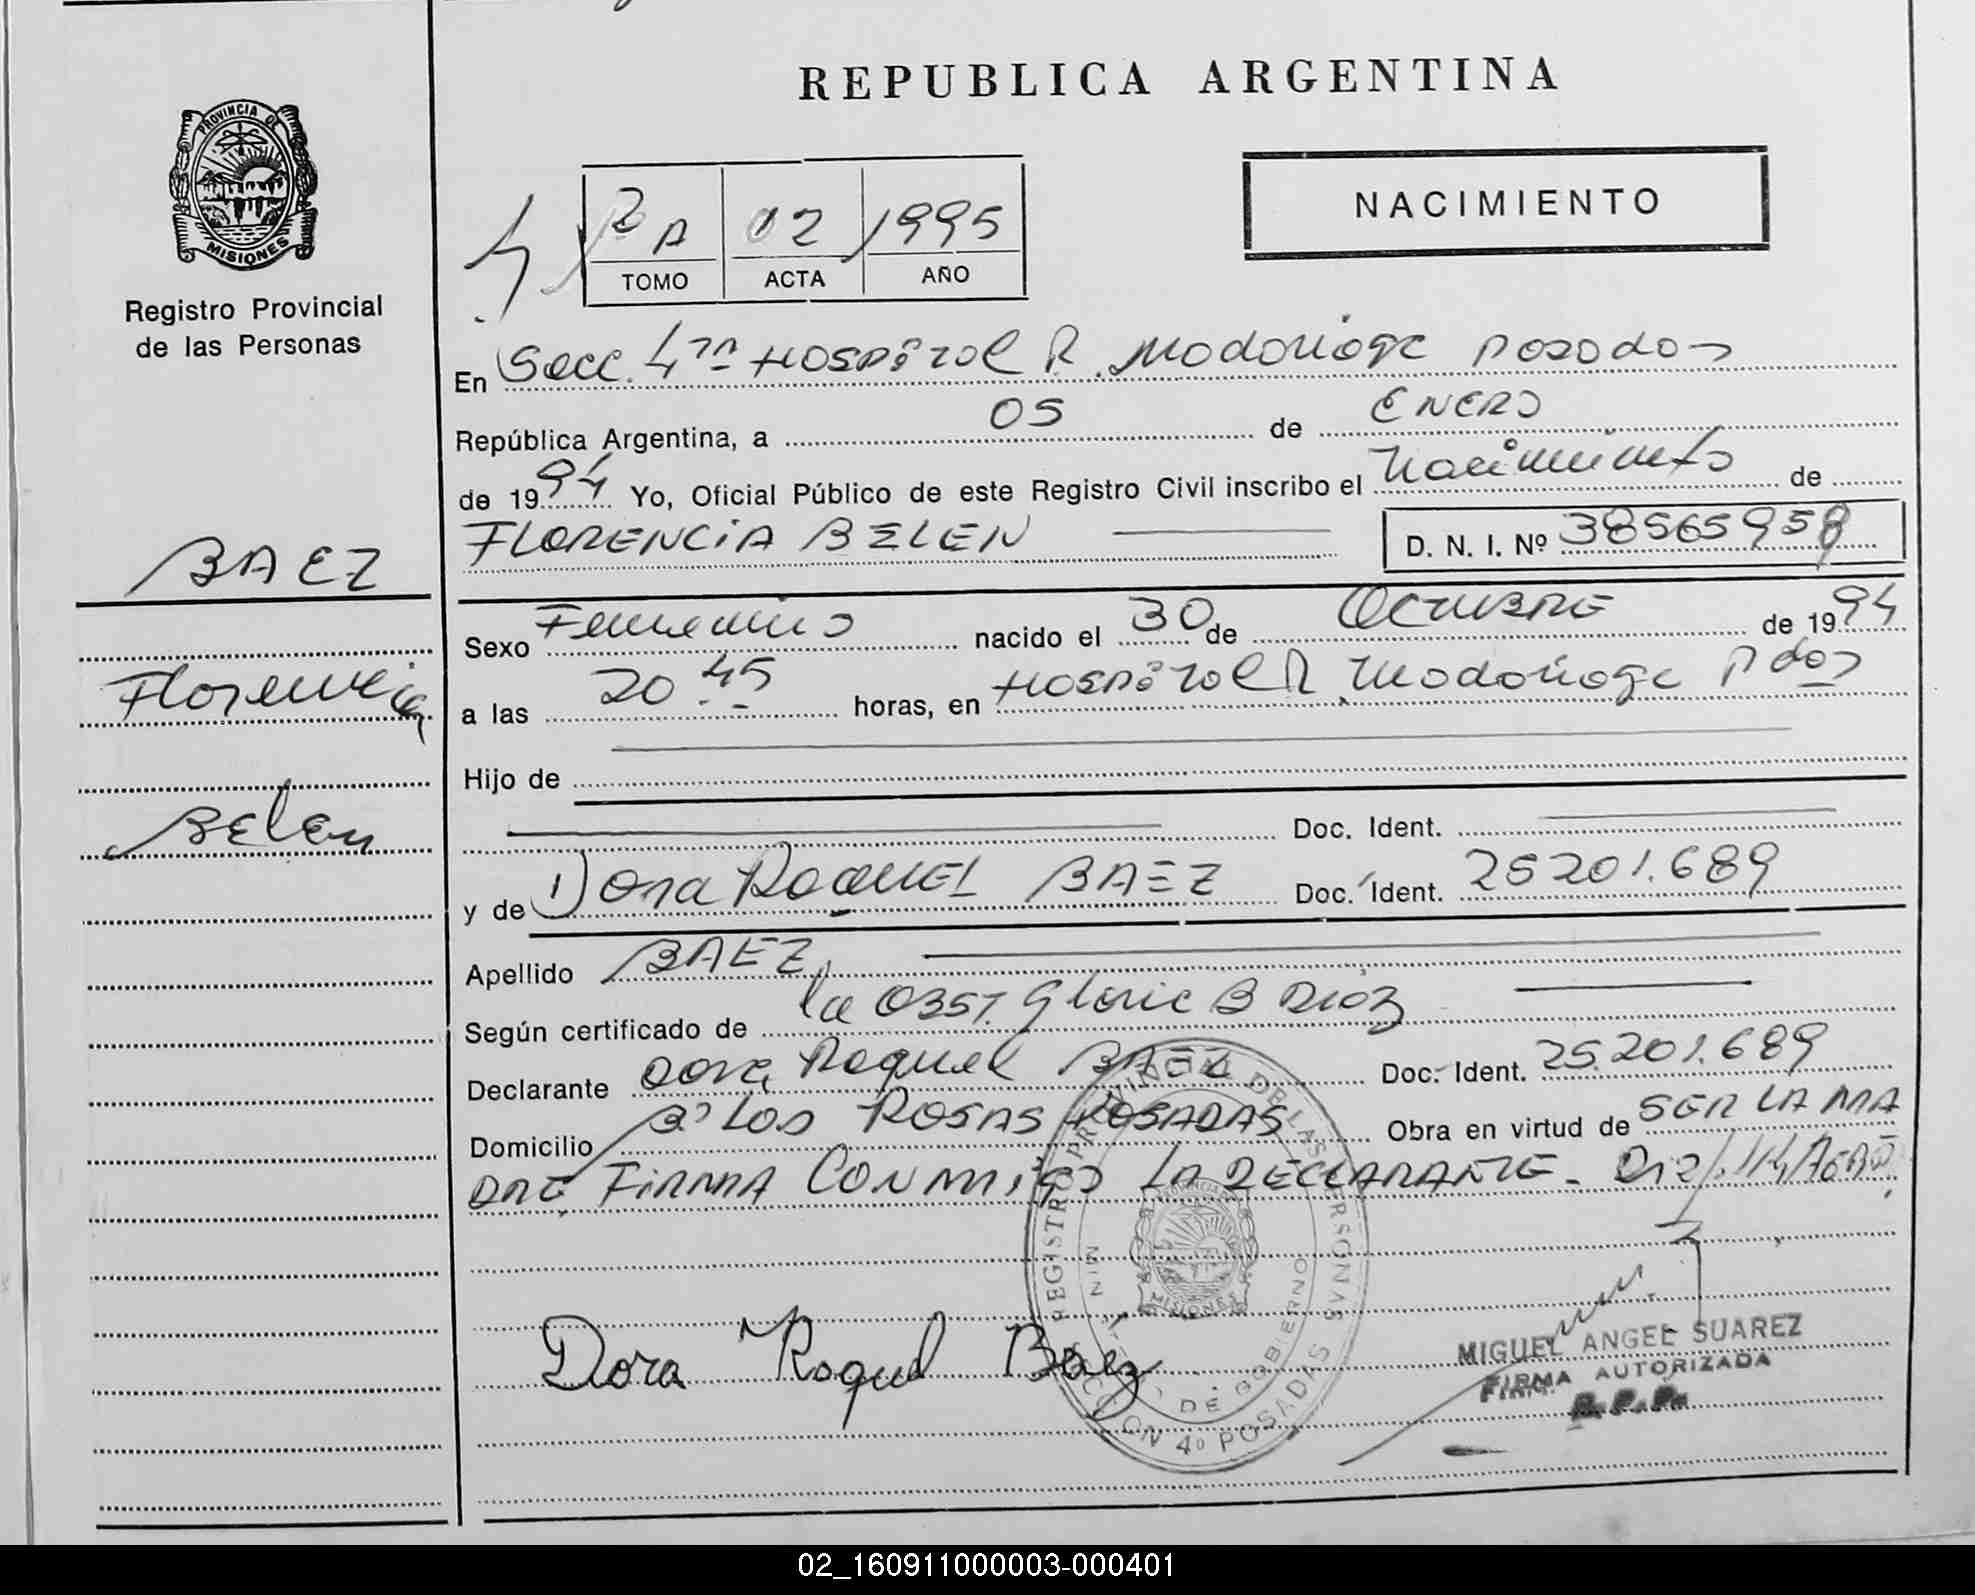 REPUBLICA ARGENTINA
PROVINCIA DE
MISIONES
Registro Provincial
de las Personas
NACIMIENTO
4 2A 02 1995
TOMO ACTA AÑO
En Secc. 4ta Hospital R. Madariaga Posadas
República Argentina, a 05 de ENERO
de 1994 Yo, Oficial Público de este Registro Civil inscribo el Nacimiento de
FLORENCIA BELEN D. N. I. Nº 38565958
BAEZ
Florencia
Belen
Sexo Femenino nacido el 30 de OCTUBRE de 1994
a las 20 45 horas, en Hospital R. Madariaga Pdas
Hijo de
Doc. Ident.
y de Dora RAQUEL BAEZ Doc. Ident. 25201.689
Apellido BAEZ
Según certificado de la OBST. Gloria B Diaz
Declarante Dora Raquel BAEZ Doc. Ident. 25.201.689
Domicilio Bº LOS ROSAS POSADAS Obra en virtud de SER LA MA
DRE FIRMA CONMIGO LA DECLARANTE.
REGISTRO PROVINCIAL DE LAS PERSONAS
MISIONES
DE GOBIERNO
SECCION 4º POSADAS
Dora Raquel Baez
MIGUEL ANGEL SUAREZ
FIRMA AUTORIZADA
R.P.P.
02_160911000003-000401